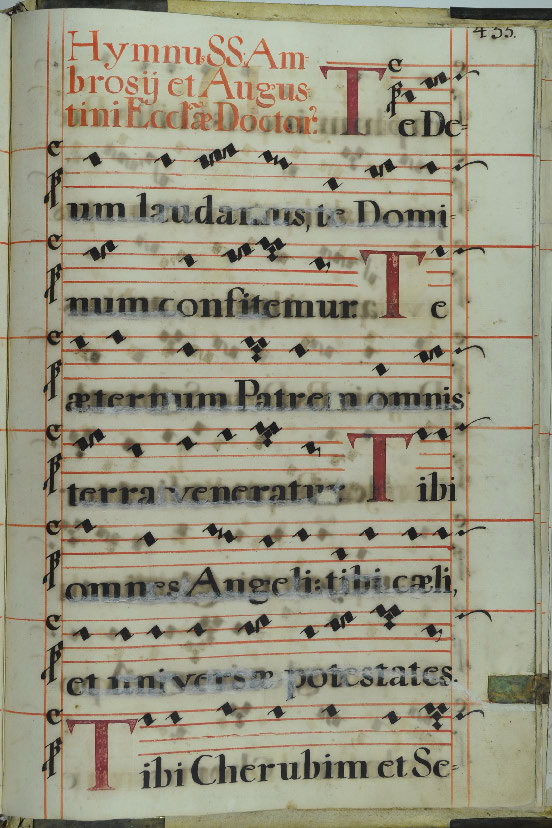 433.
HymnuSS.Am-
brosij et Augus-
tini Ecclæ Doctor.
Te De-
um laudamus, te Domi-
num confitemur. Te
æternum Patrem omnis
terra veneratur. Tibi
omnes Angeli: tibi cæli,
et universæ potestates.
Tibi Cherubim et Se-